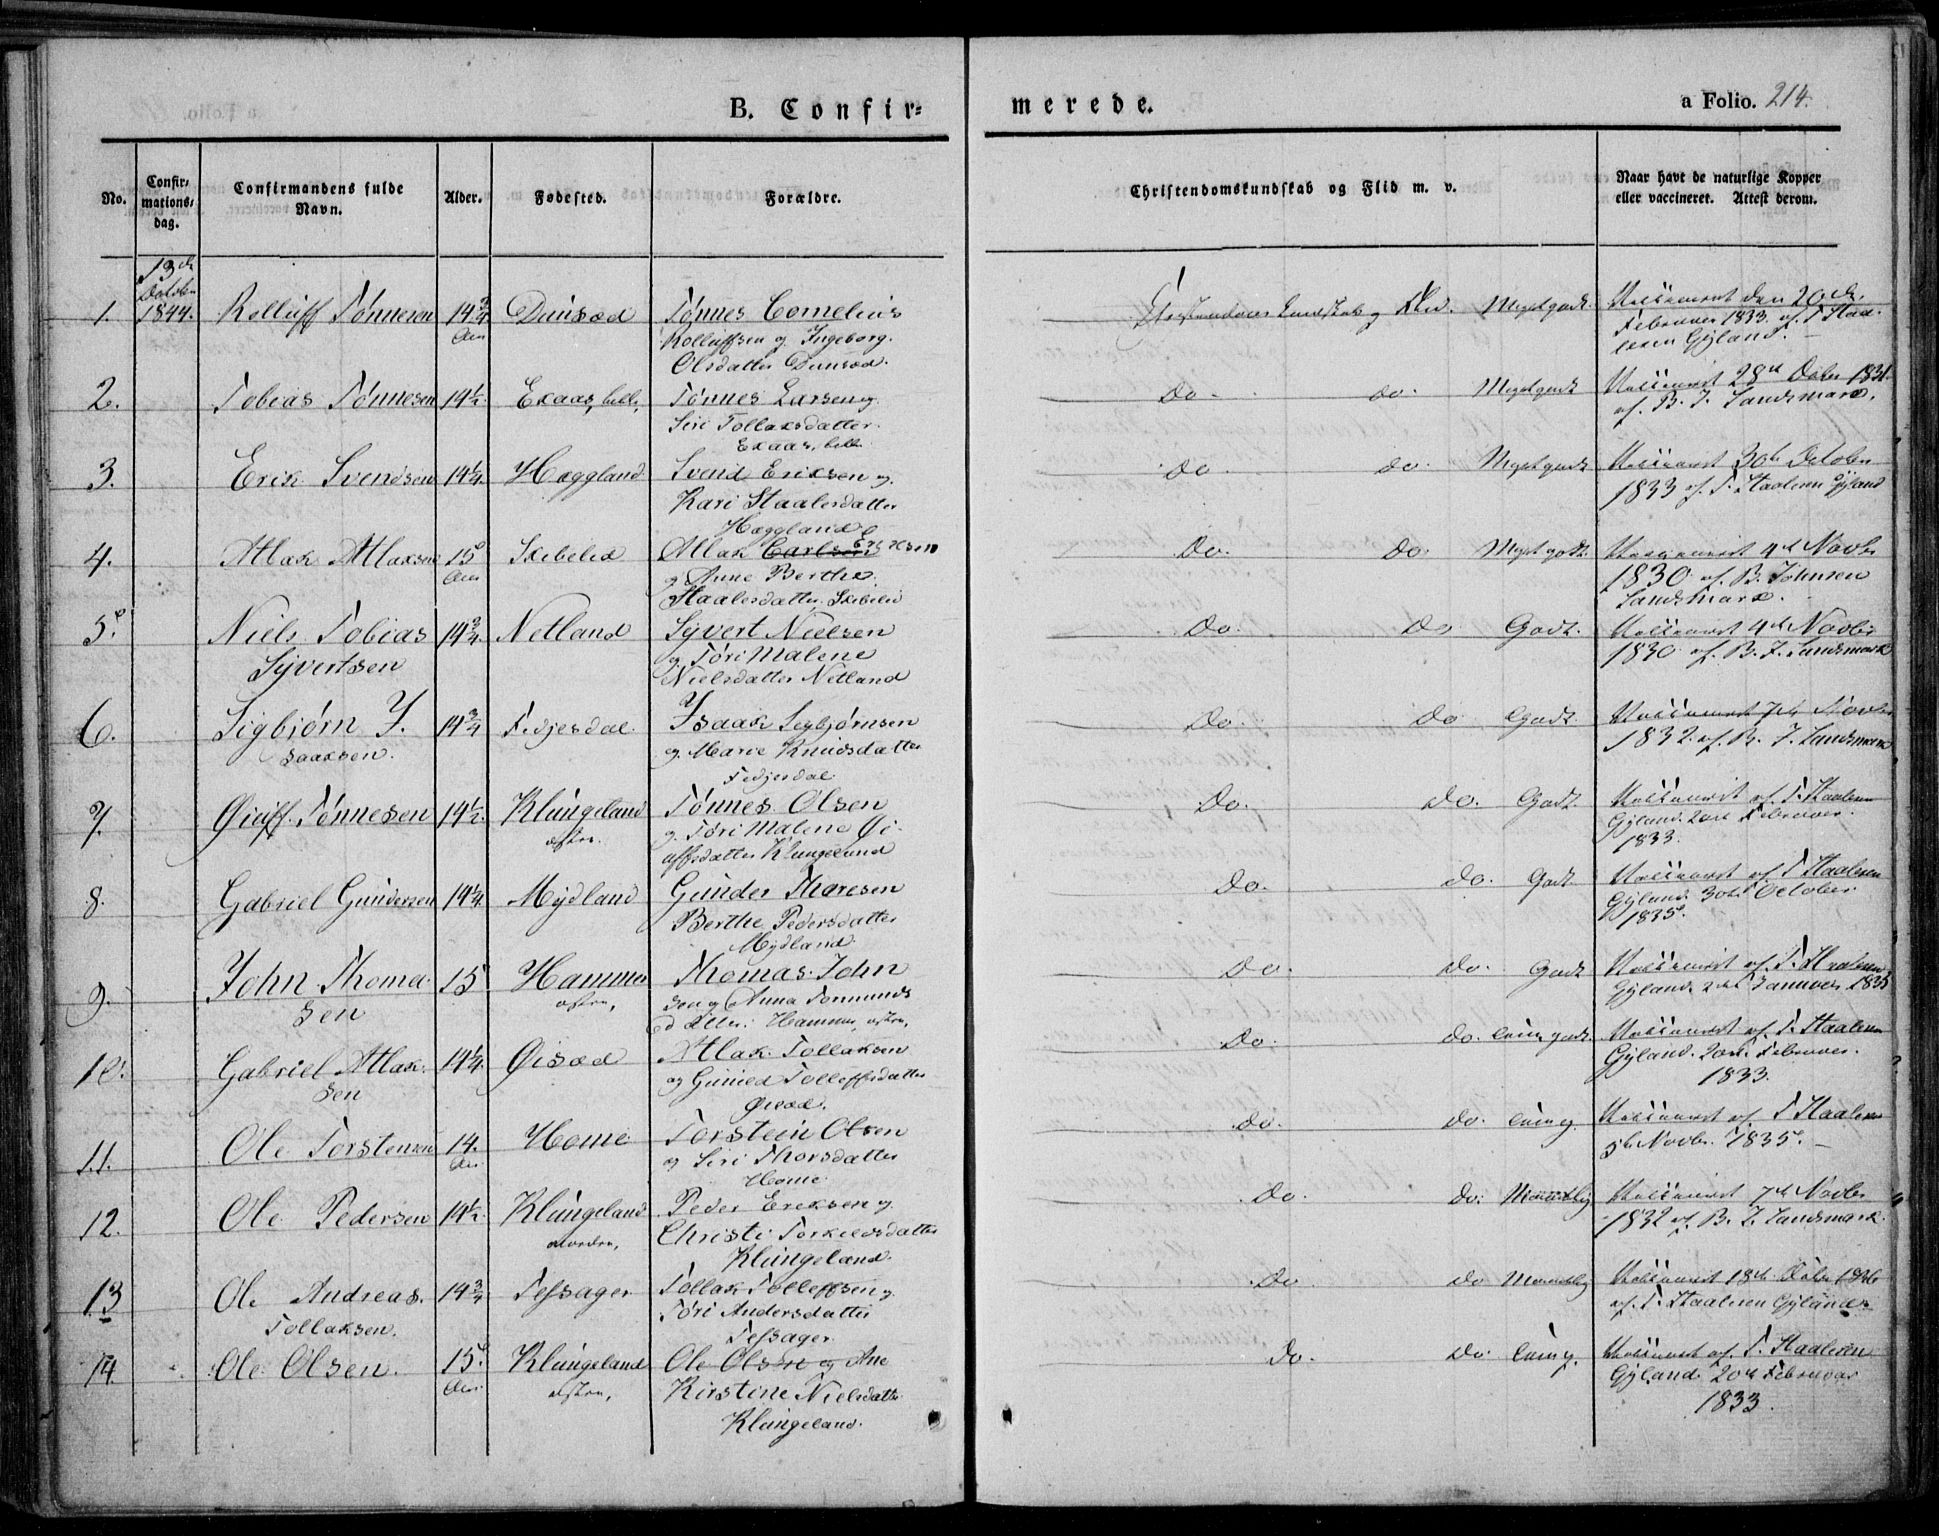 B. Confir=
merede.
a Folio. 214.
No.
Confir-
mations-
dag.
Confirmandens fulde
Navn.
Alder.
Fødested.
Forældre.
Christendomskundskab og Flid m. v.
Naar havt de naturlige Kopper
eller vaccineret. Attest derom.
13de
October
1844.
1. Rolluff Tønnesen 14 3/4 Aar Dunsæd Tønnes Cornelius
Rolluffsen og Ingeborg
Olsdatter Dunsæd.
Christendoms kundskab og Flid. Megetgodt. Vaccineret den 20de
Februar 1833. af T. Staa-
lesen Gyland.
2. Tobias Tønnesen 14 1/2. Exaas, Tønnes Larsen og
Siri Tollaksdatter
Exaas,
Do. do. Megetgodt Vaccineret 28de Octbr 1831.
af B. J. Landsmark.
3. Erik Svendsen 14 1/4. Heggland Svend Eriksen og
Kari Staalesdatter
Heggland
Do do. Megetgodt Vaccineret 30te October
1833 af T. Staalesen Gyland
4. Atlak Atlaksen 15 Aar Skibelid Atlak
og Anne Berthe
Staalesdatter Skibelid
Do. Do. Megetgodt. Vaccineret 4de Novbr
1830 af B. Johnsen
Landsmark.
5. Niels Tobias
Syvertsen 14 3/4. Netland Syvert Nielsen
og Tøri Malene
Nielsdatter Netland
Do. Do Godt. Vaccineret 4de Novbr
1830 af B. J. Landsmark
6. Sigbjørn I.
saaksen. 14 3/4 Fedjesdal. Isaak Sigbjørnsen
og Marie Knudsdatter
Fedjesdal
Do. Do Godt. Vaccineret 7de Novbr
1832. af B. J. Landsmark
7. Øiuff Tønnesen 14 1/2. Klungeland
østre. Tønnes Olsen
og Tøri Malene Øi-
uffsdatter Klungeland
Do. Do. Godt Vaccineret af T. Staalesen
Gyland 20de Februar.
1833.
8. Gabriel Gundersen 14 1/4. Mydland Gunder Tharesen
Berthe Pedersdatter
Mydland
Do. Do. Godt Vaccineret af T. Staalesen
Gyland 30te October
1835.
9. John Thoma-
sen 15 Hammer
østre, Thomas John
sen og Anna Tormunds
datter: Hammer østre,
Do. do. Godt Vaccineret af T. Staalesen
Gyland 2de Januar 1835
10. Gabriel Atlak-
sen 14 1/4. Øisæd Atlak Tollaksen
og Gunild Tolleffsdatter
Øisæd.
Do. do. Vaccineret af T. Staalesen
Gyland. 20de Februar.
1833.
11. Ole Torstensen 14. Aar Home Torstein Olsen
og Siri Thorsdatter
Home
do. do. Vaccineret af T. Staalesen
5te Novbr. 1835. —
12. Ole Pedersen 14 1/2. Klungeland
nordre, Peder Eriksen og
Christi Torkildsdatter
Klungeland
do. do. Maadelig Vaccineret 7de Novbr
1832 af B. J. Landsmark.
13 Ole Andreas.
Tollaksen. 14 3/4 Tessager Tollak Tolleffsen og
Tøri Andersdatter
Tessager
Do do Maadelig Vaccineret 18de Octbr 1836
af T. Staalesen Gyland
14. Ole Olsen. 15. Aar Klungeland
østre, Ole Olsen og Ane
Kirstine Nielsdatter
Klungeland.
Do. Do Vaccineret af T. Staalesen
Gyland 20de Februar
1833.